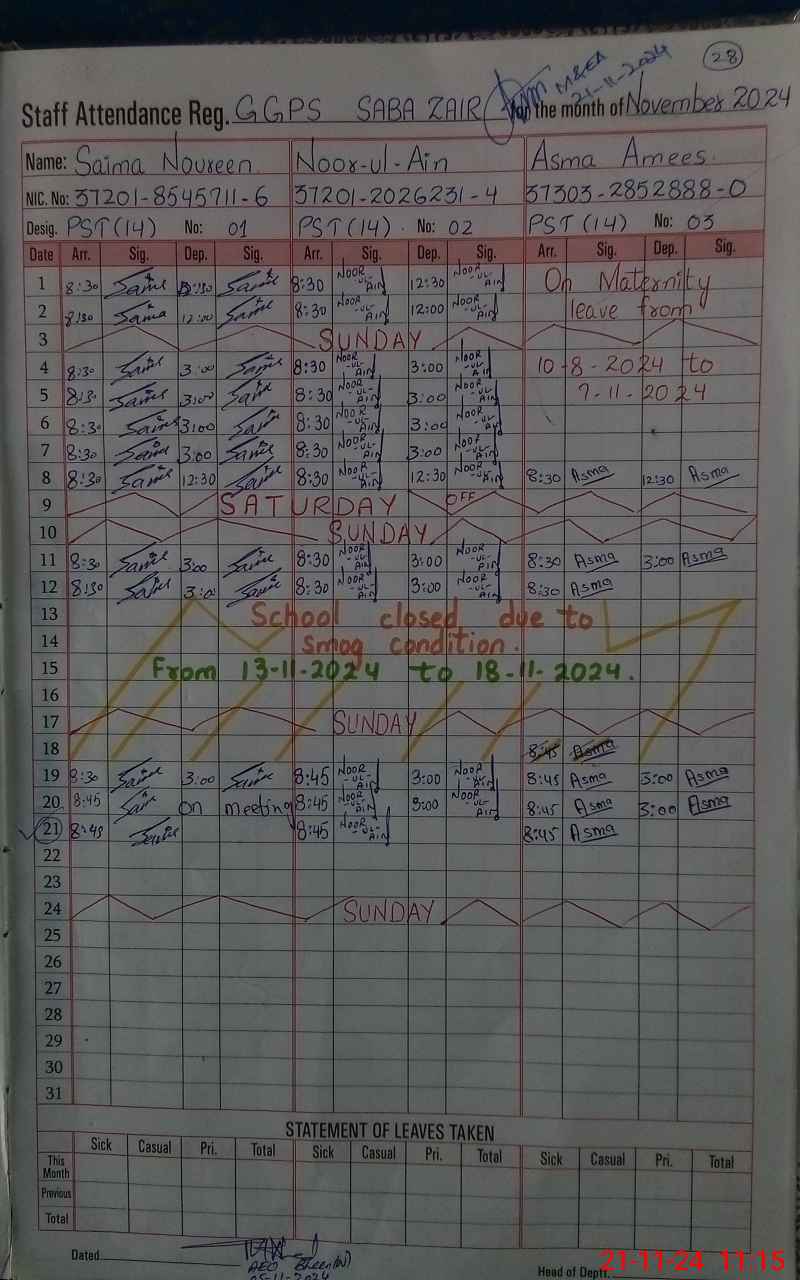 28
M&EA
21-11-2024
Staff Attendance Reg. GGPS SABA ZAIR for the month of November 2024
Name: Saima Noureen Noor-ul-Ain Asma Amees.
NIC. No: 37201-8545711-6 37201-2026231-4 37303-2852888-0
Desig. PST(14) No: 01 PST(14). No: 02 PST(14) No: 03
Date Arr. Sig. Dep. Sig. Arr. Sig. Dep. Sig. Arr. Sig. Dep. Sig.
1 8:30 8:30 NOOR-UL-AIN 12:30 NOOR-UL-AIN On Maternity
2 8:30 12:00 8:30 NOOR-UL-AIN 12:00 NOOR-UL-AIN leave from
3 SUNDAY
4 8:30 3:00 8:30 NOOR-UL-AIN 3:00 NOOR-UL-AIN 10-8-2024 to
5 8:30 3:00 8:30 NOOR-UL-AIN 3:00 NOOR-UL-AIN 7-11-2024
6 8:30 3:00 8:30 NOOR-UL-AIN 3:00 NOOR-UL-AIN
7 8:30 3:00 8:30 NOOR-UL-AIN 3:00 NOOR-UL-AIN
8 8:30 12:30 8:30 NOOR-UL-AIN 12:30 NOOR-UL-AIN 8:30 Asma 12:30 Asma
9 SATURDAY OFF
10 SUNDAY
11 8:30 3:00 8:30 NOOR-UL-AIN 3:00 NOOR-UL-AIN 8:30 Asma 3:00 Asma
12 8:30 3:00 8:30 NOOR-UL-AIN 3:00 NOOR-UL-AIN 8:30 Asma
13 School closed due to
14 Smog condition.
15 From 13-11-2024 to 18-11-2024.
16
17 SUNDAY
18 8:45 Asma
19 8:30 3:00 8:45 NOOR-UL-AIN 3:00 NOOR-UL-AIN 8:45 Asma 3:00 Asma
20 8:45 on meeting 8:45 NOOR-UL-AIN 3:00 NOOR-UL-AIN 8:45 Asma 3:00 Asma
21 8:45 8:45 NOOR-UL-AIN 8:45 Asma
22
23
24 SUNDAY
25
26
27
28
29
30
31
STATEMENT OF LEAVES TAKEN
Sick Casual Pri. Total Sick Casual Pri. Total Sick Casual Pri. Total
This Month
Previous
Total
Dated
AEO
Head of Deptt.
21-11-24 11:15